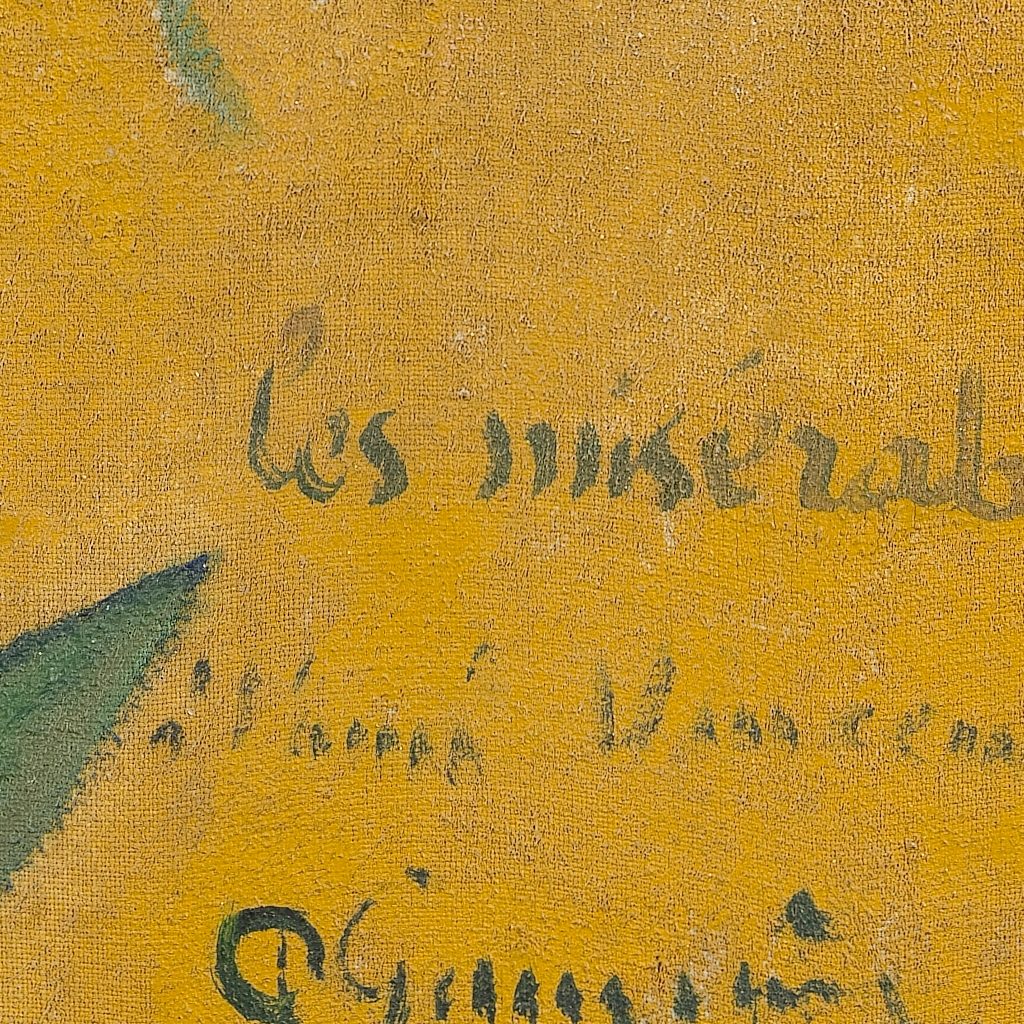 les misérab
à l'ami Vincent
P Gauguin